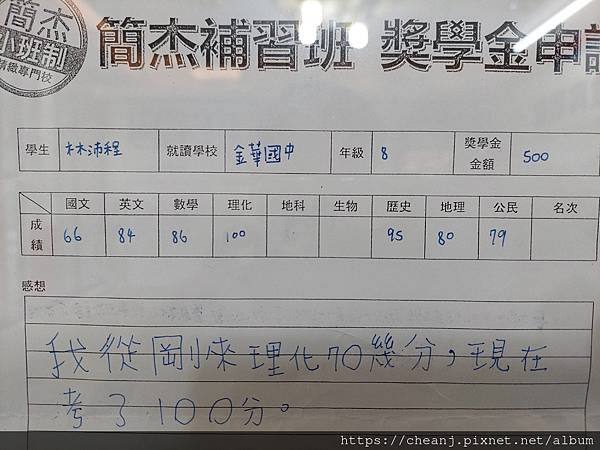 簡杰
小班制
精緻專門校
簡杰補習班 獎學金申請
學生 林沛程 就讀學校 金華國中 年級 8 獎學金金額 500
國文 英文 數學 理化 地科 生物 歷史 地理 公民 名次
成績 66 84 86 100 95 80 79
感想
我從剛來理化70幾分，現在
考了100分。
https://cheanj.pixnet.net/album